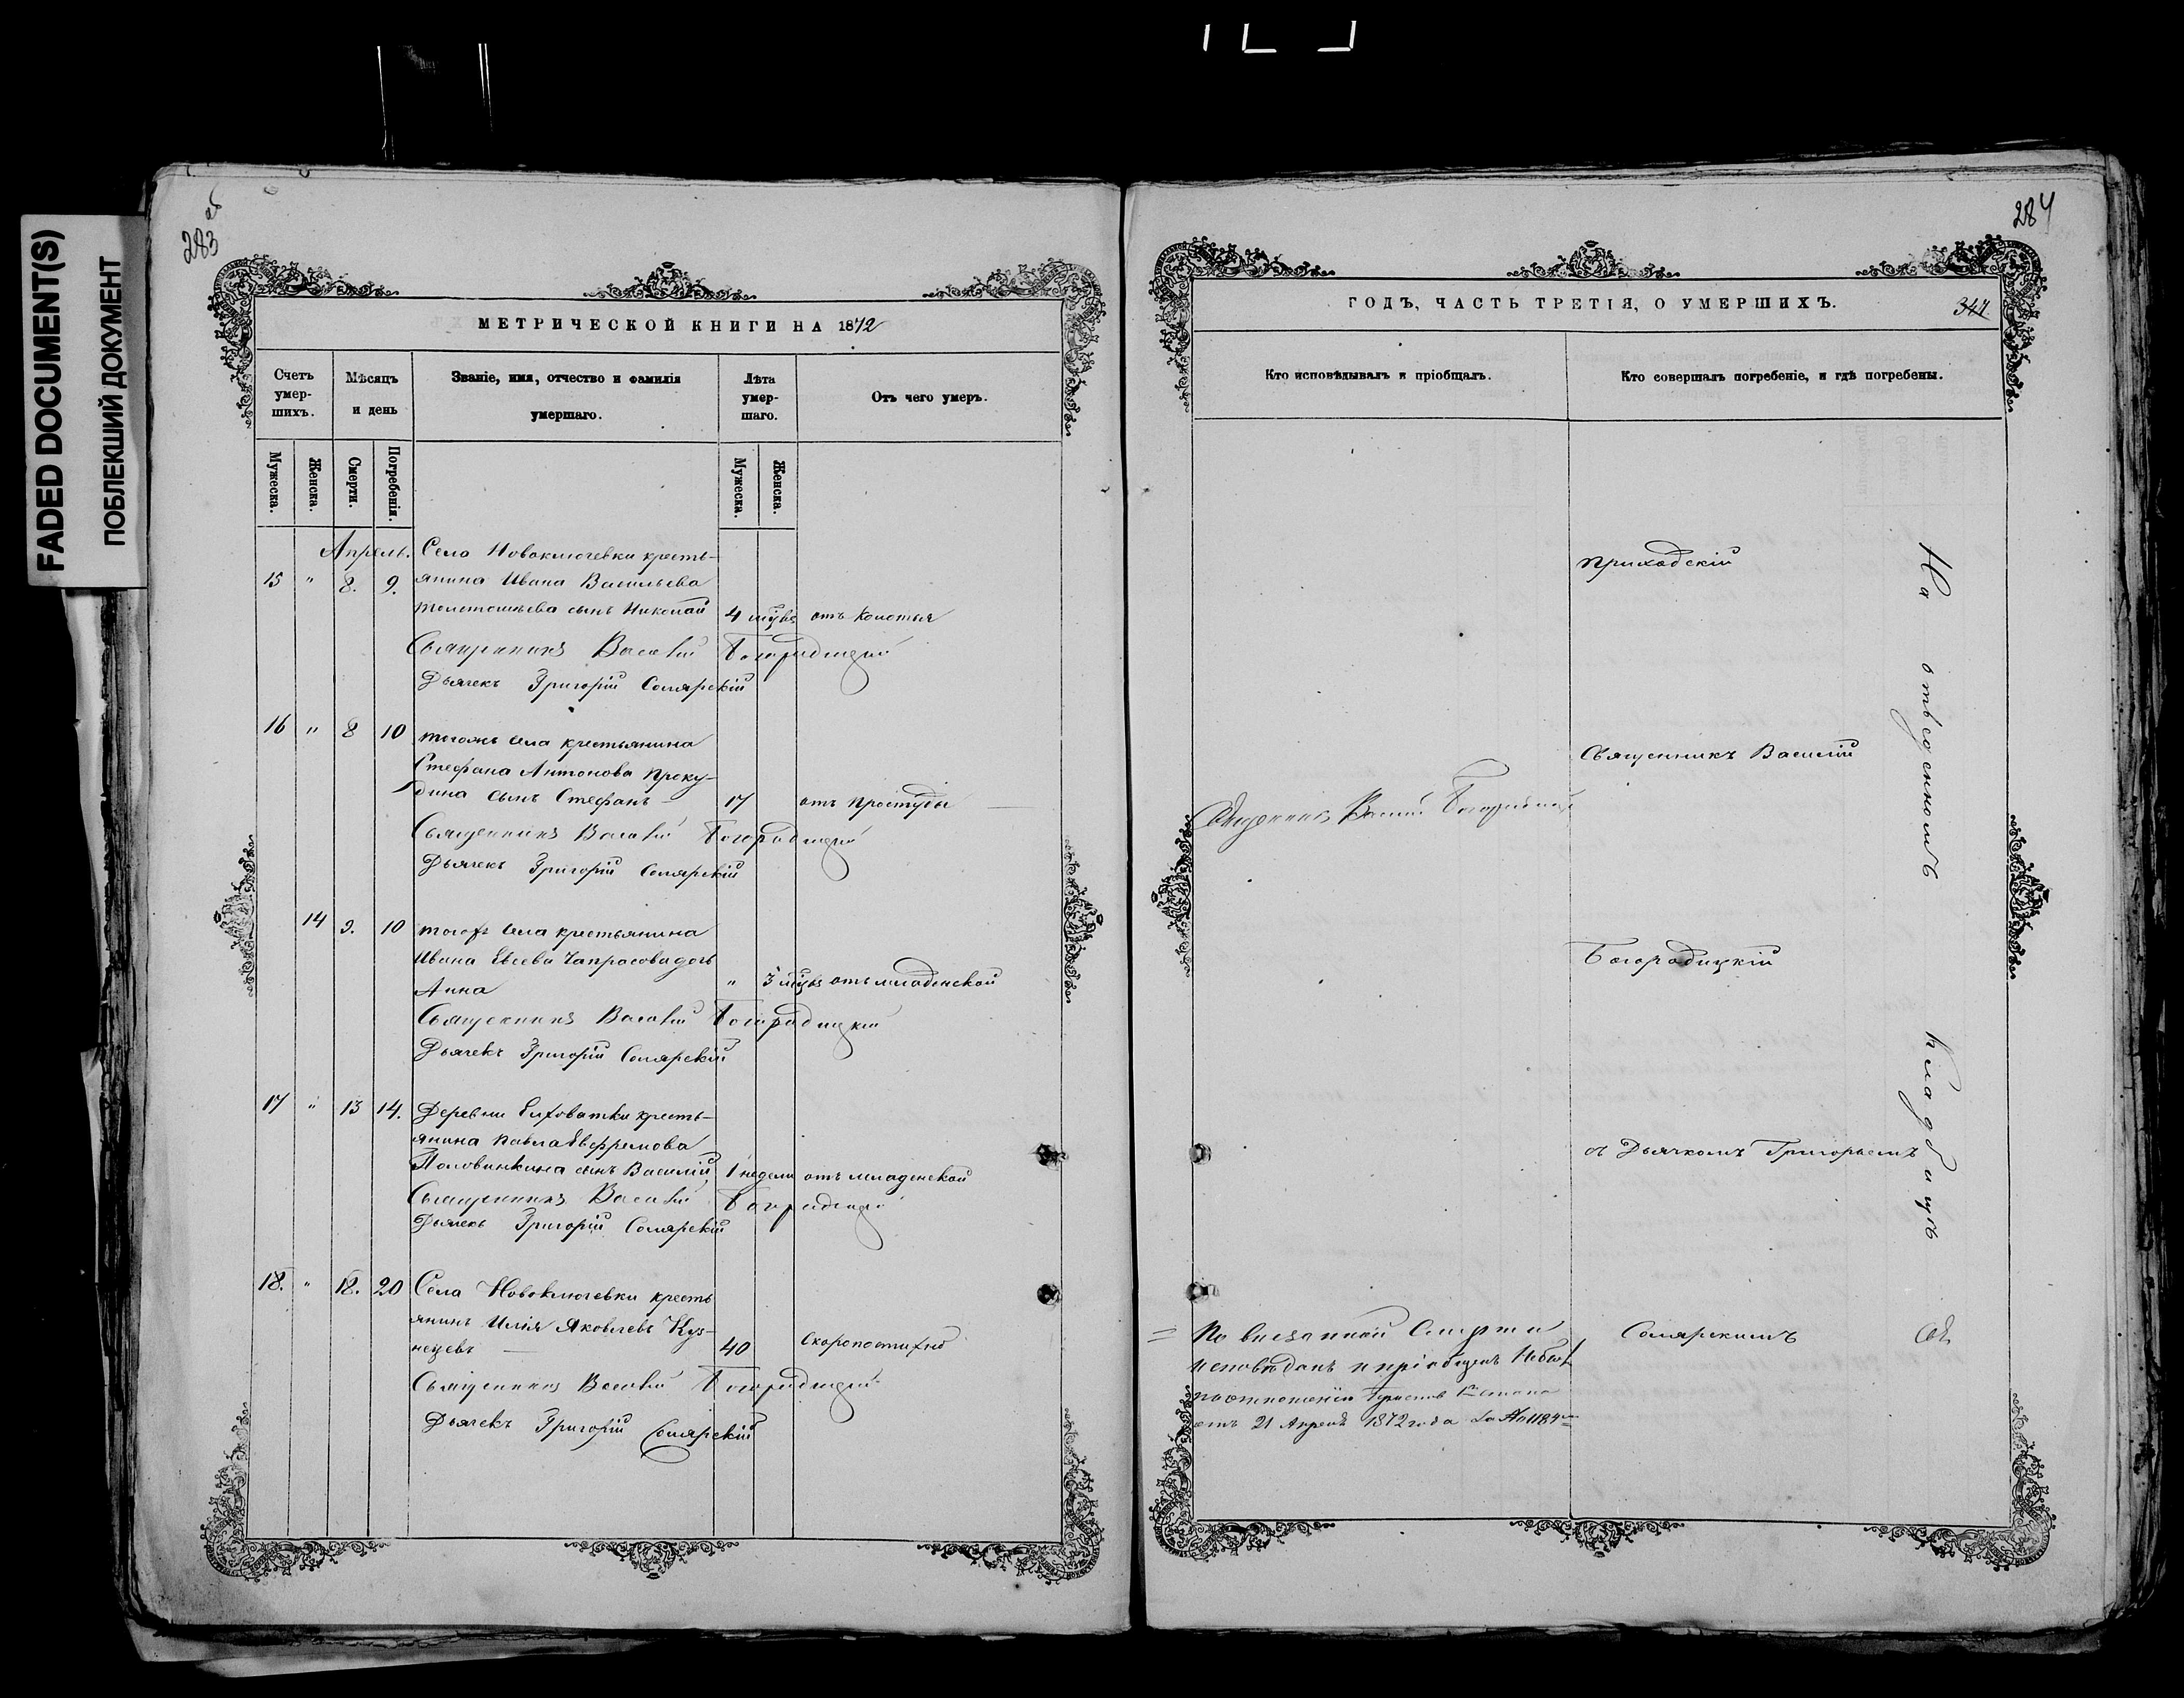 FADED DOCUMENT(S)
ПОБЛЕКШИЙ ДОКУМЕНТ
283
об
МЕТРИЧЕСКОЙ КНИГИ НА 1872
Счетъ умер-шихъ.
Мѣсяцъ и день
Званіе, имя, отчество и фамилія умершаго.
Лѣта умер-шаго.
Отъ чего умеръ.
Мужеска.
Женска.
Смерти.
Погребенія.
Мужеска.
Женска.
Апрель. Села Новоключевки кресть-
15 " 8. 9. янина Ивана Васильева
сынъ Николай 4 мцвъ отъ колотья
Священникъ Василій Богородицкій
Дьячекъ Григорій Солярскій
16 " 8 10 тогожъ села крестьянина
Стефана Антонова Проку-
дина сынъ Стефанъ 17 отъ простуды
Священникъ Василій Богородицкій
Дьячекъ Григорій Солярскій
14 9. 10 тогожъ села крестьянина
Ивана Евсева Чапрасова дочь
Анна " 3 мцвъ отъ младенской
Священникъ Василій Богородицкій
Дьячекъ Григорій Солярскій
17 " 13 14. Деревни Елховатки кресть-
янина Павла Евфремова
Половинкина сынъ Василій 1 недели отъ младенской
Священникъ Василій Богородицкій
Дьячекъ Григорій Солярскій
18. " 18. 20 Села Новоключевки кресть
янинъ Илія Яковлевъ Куз-
нецевъ 40 Скоропостижно
Священникъ Василій Богородицкій
Дьячекъ Григорій Солярскій
284
ГОДЪ, ЧАСТЬ ТРЕТІЯ, О УМЕРШИХЪ.
347
Кто исповѣдывалъ и пріобщалъ.
Кто совершалъ погребеніе, и гдѣ погребены.
Приходскій
Священникъ Василій
Священникъ Василій Богородицкій
Богородицкій
съ Дьячкомъ Григорьемъ
Солярскимъ
На отведенномъ кладбищѣ
По внезапной Смерти
исповѣданъ и пріобщенъ Небылъ
по отношенію Пристава Стана
отъ 21 Апреля 1872 года за № 1184